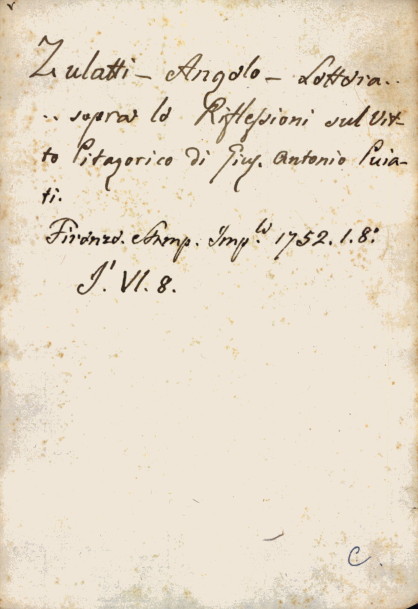 Zulatti - Angelo - Lettera..
.. sopra le Riflessioni sul Vit-
to Pitagorico di Gius. Antonio Puia-
ti.
Firenze. Stamp. Imp.le 1752. 1. 8.°
J' VI. 8.
C.